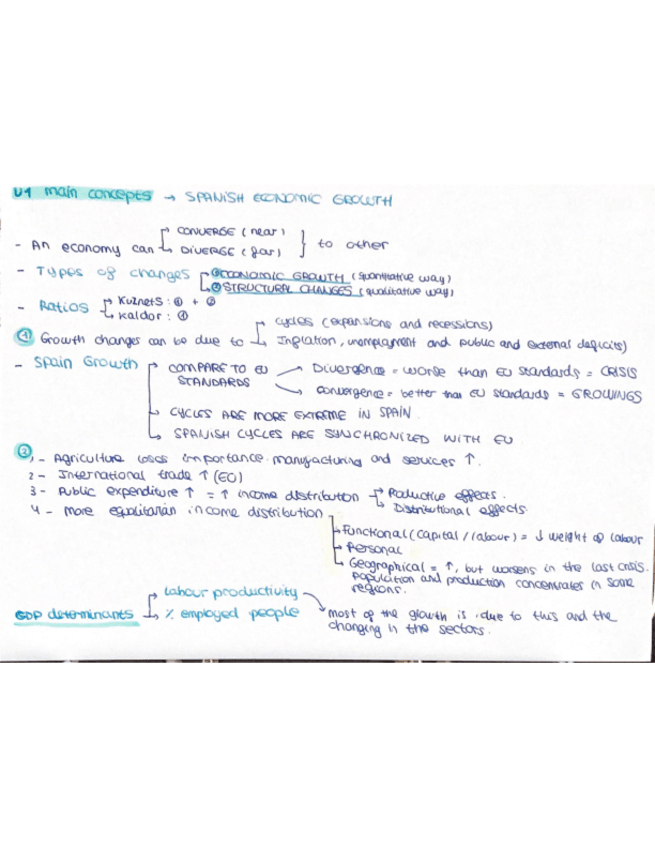 U1 main concepts → SPANISH ECONOMIC GROWTH
- An economy can: CONVERGE (near) DIVERGE (far) } to other
- Types of changes ① ECONOMIC GROWTH (quantitative way)
② STRUCTURAL CHANGES (qualitative way)
- Ratios Kuznets: ① + ②
Kaldor: ①
① Growth changes can be due to cycles (expansions and recessions)
Inflation, unemployment and public and external deficits)
- Spain Growth COMPARE TO EU STANDARDS Divergence = worse than EU standards = CRISIS
convergence = better than EU standards = GROWINGS
CYCLES ARE MORE EXTREME IN SPAIN.
SPANISH CYCLES ARE SYNCHRONIZED WITH EU
②
1 - Agriculture loses importance. manufacturing and services ↑.
2 - International trade ↑ (EO)
3 - Public expenditure ↑ = ↑ income distribution → Productive effects.
Distributional effects.
4 - more equalitarian income distribution
Functional (capital / labour) = ↓ weight of labour
Personal
Geographical = ↑, but worsens in the last crisis.
Population and production concentrates in some
regions.
GDP determinants labour productivity
% employed people
most of the growth is due to this and the
changing in the sectors.